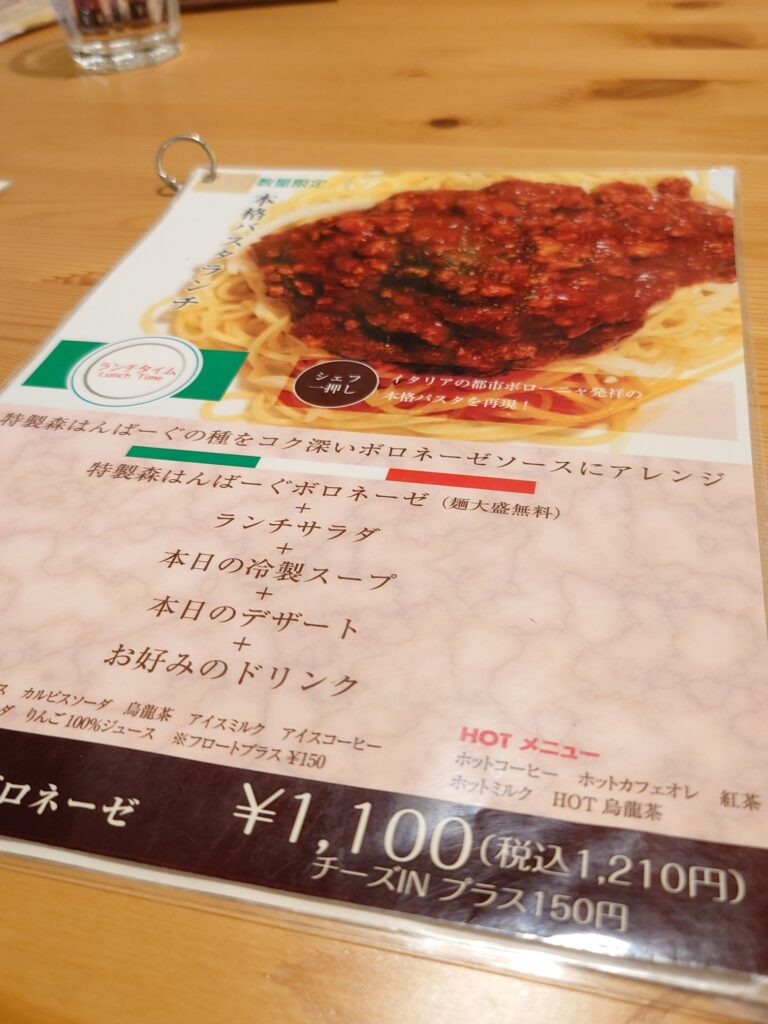 数量限定
本格パスタランチ
ランチタイム
Lunch Time
シェフ
一押し
イタリアの都市ボローニャ発祥の
本格パスタを再現！
特製森はんばーぐの種をコク深いボロネーゼソースにアレンジ
特製森はんばーぐボロネーゼ（麺大盛無料）
+
ランチサラダ
+
本日の冷製スープ
+
本日のデザート
+
お好みのドリンク
ス カルピスソーダ 烏龍茶 アイスミルク アイスコーヒー
ダ りんご100%ジュース ※フロートプラス¥150
HOT メニュー
ホットコーヒー ホットカフェオレ 紅茶
ホットミルク HOT 烏龍茶
ボロネーゼ
¥1,100(税込1,210円)
チーズIN プラス150円